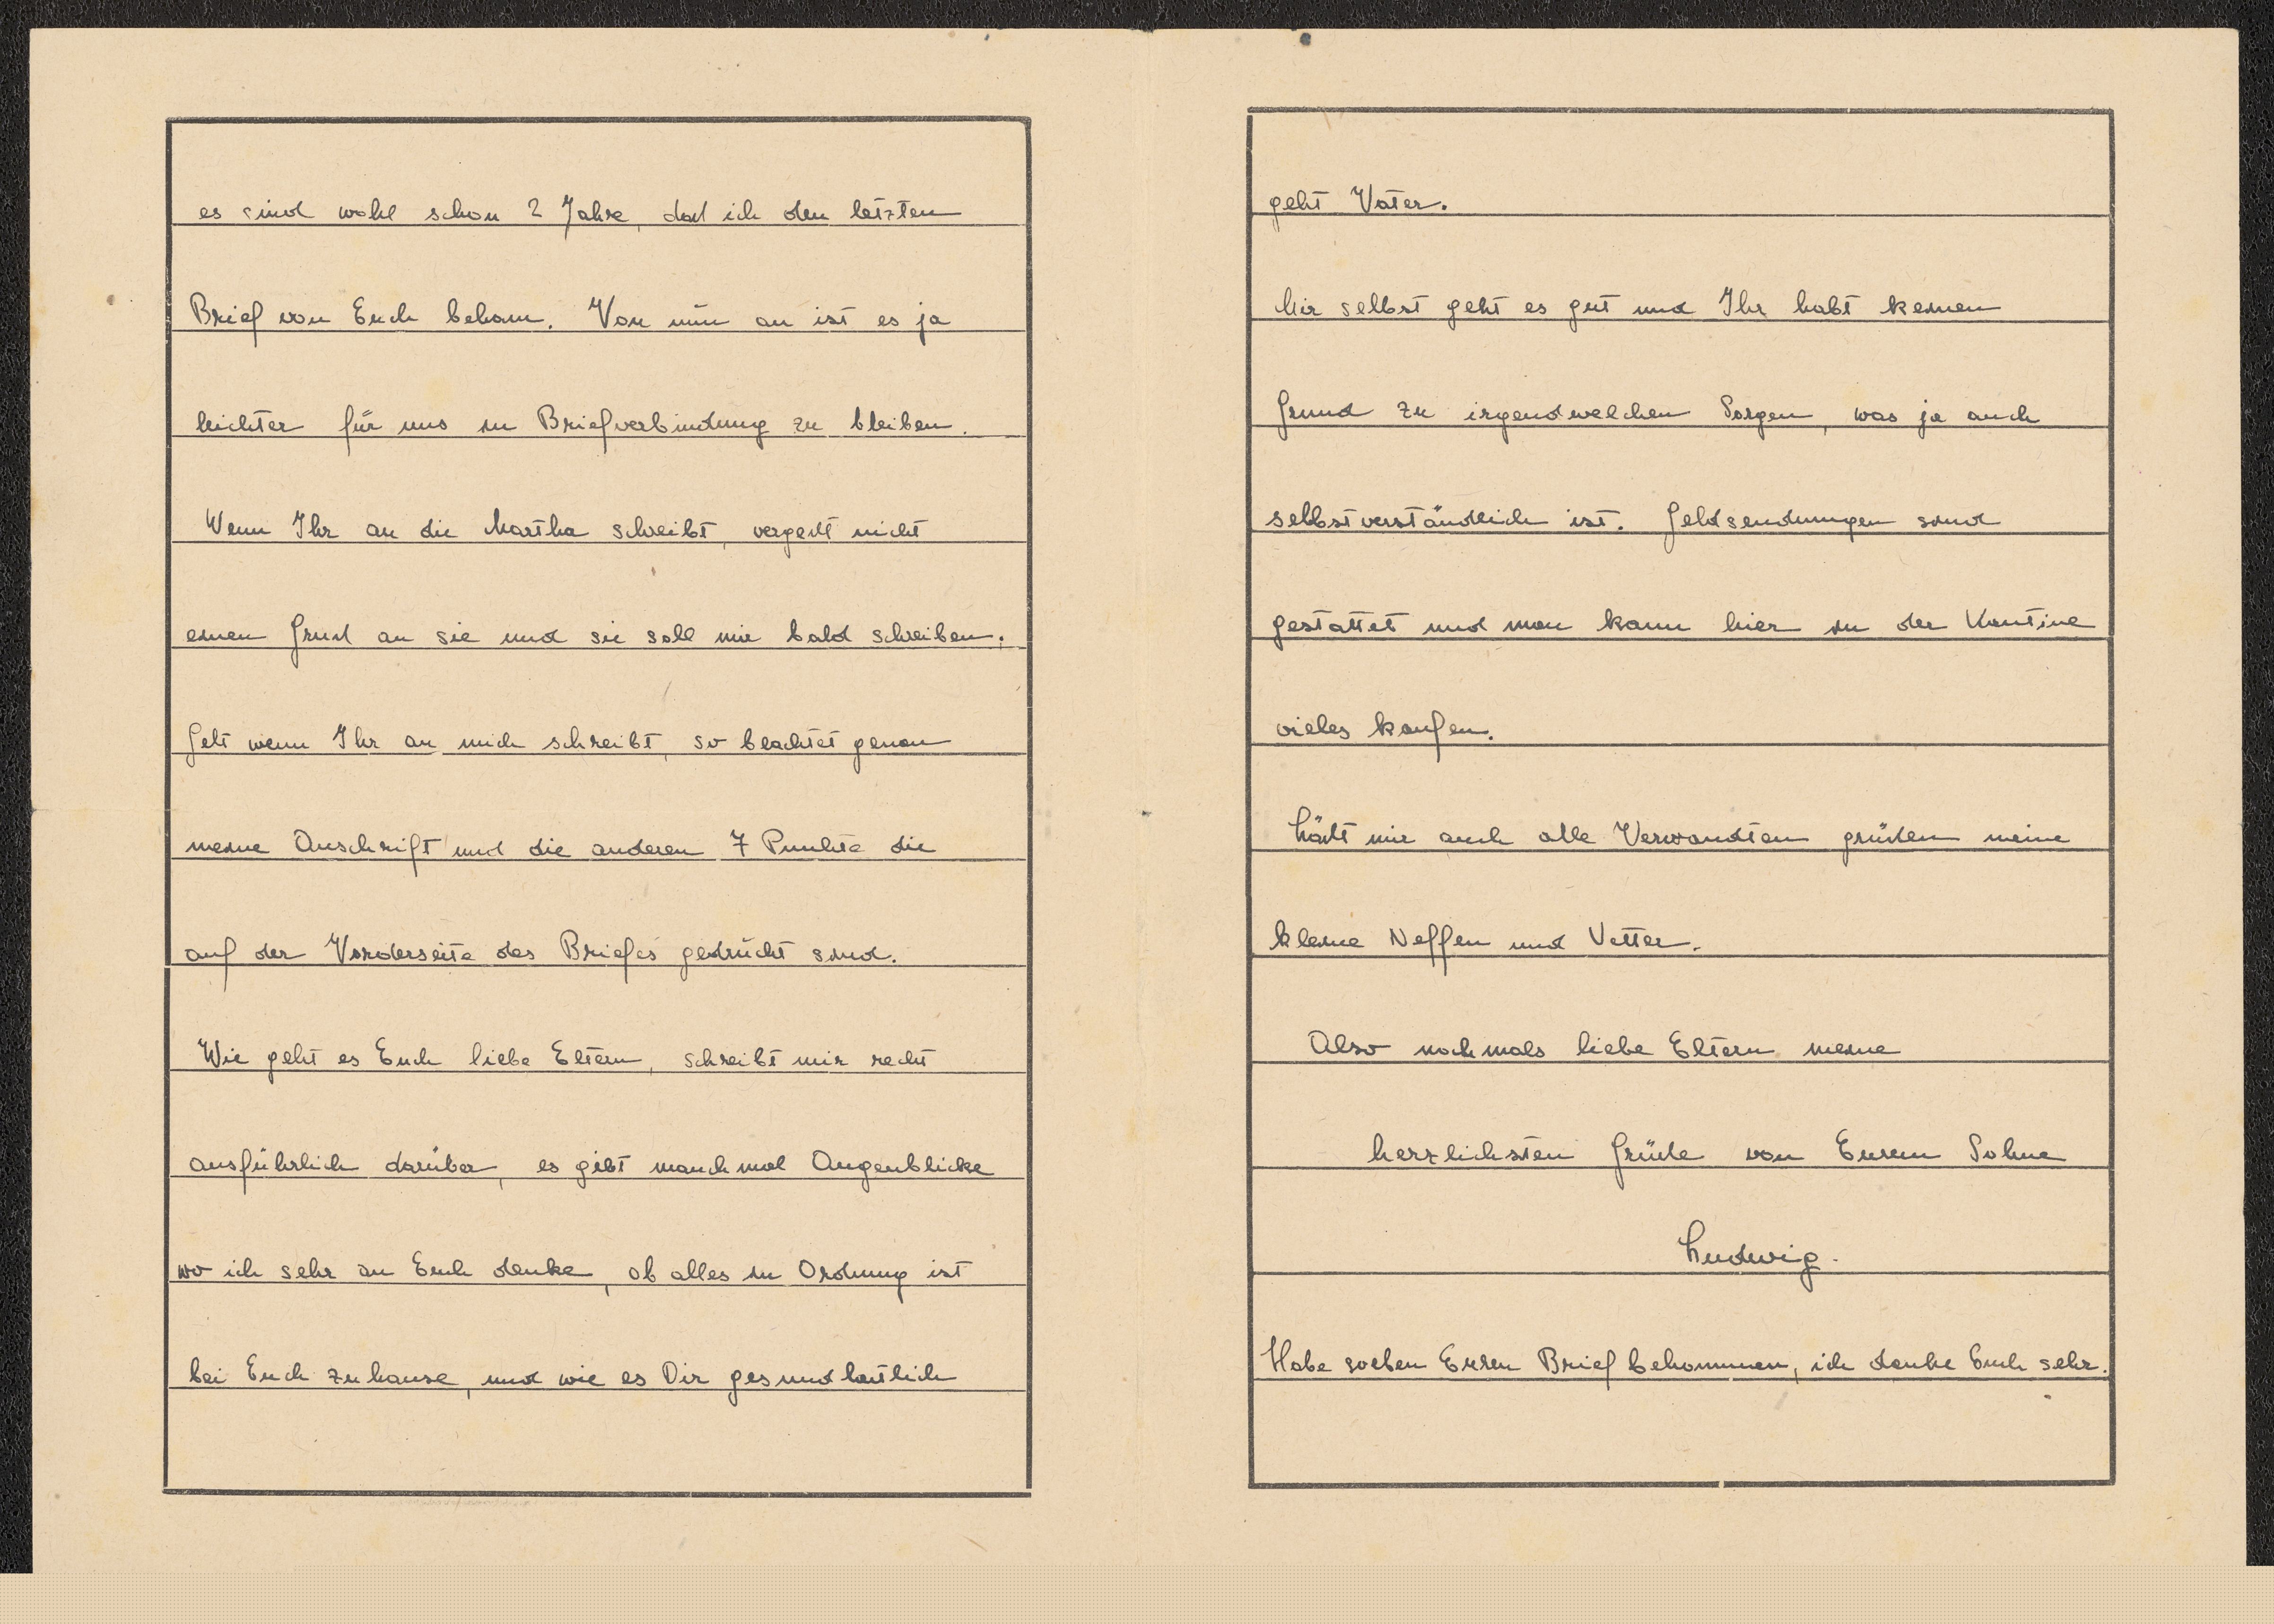 es sind wohl schon 2 Jahre, daß ich den letzten
Brief von Euch bekam. Von nun an ist es ja
leichter für uns in Briefverbindung zu bleiben.
Wenn Ihr an die Martha schreibt, vergeßt nicht
einen Gruß an sie und sie soll mir bald schreiben.
Gelt wenn Ihr an mich schreibt, so beachtet genau
meine Anschrift und die anderen 7 Punkte die
auf der Vorderseite des Briefes gedrückt sind.
Wie geht es Euch liebe Eltern, schreibt mir recht
ausführlich darüber, es gibt manchmal Augenblicke
wo ich sehr an Euch denke, ob alles in Ordnung ist
bei Euch zuhause, und wie es Dir gesundheitlich
geht Vater.
Mir selbst geht es gut und Ihr habt keinen
Grund zu irgendwelchen Sorgen, was ja auch
selbstverständlich ist. Geldsendungen sind
gestattet und man kann hier in der Kantine
vieles kaufen.
Läßt mir auch alle Verwandten grüßen meine
kleine Neffen und Vetter.
Also nochmals liebe Eltern meine
herzlichsten Grüße von Eurem Sohne
Ludwig.
Habe soeben Euren Brief bekommen, ich danke Euch sehr.